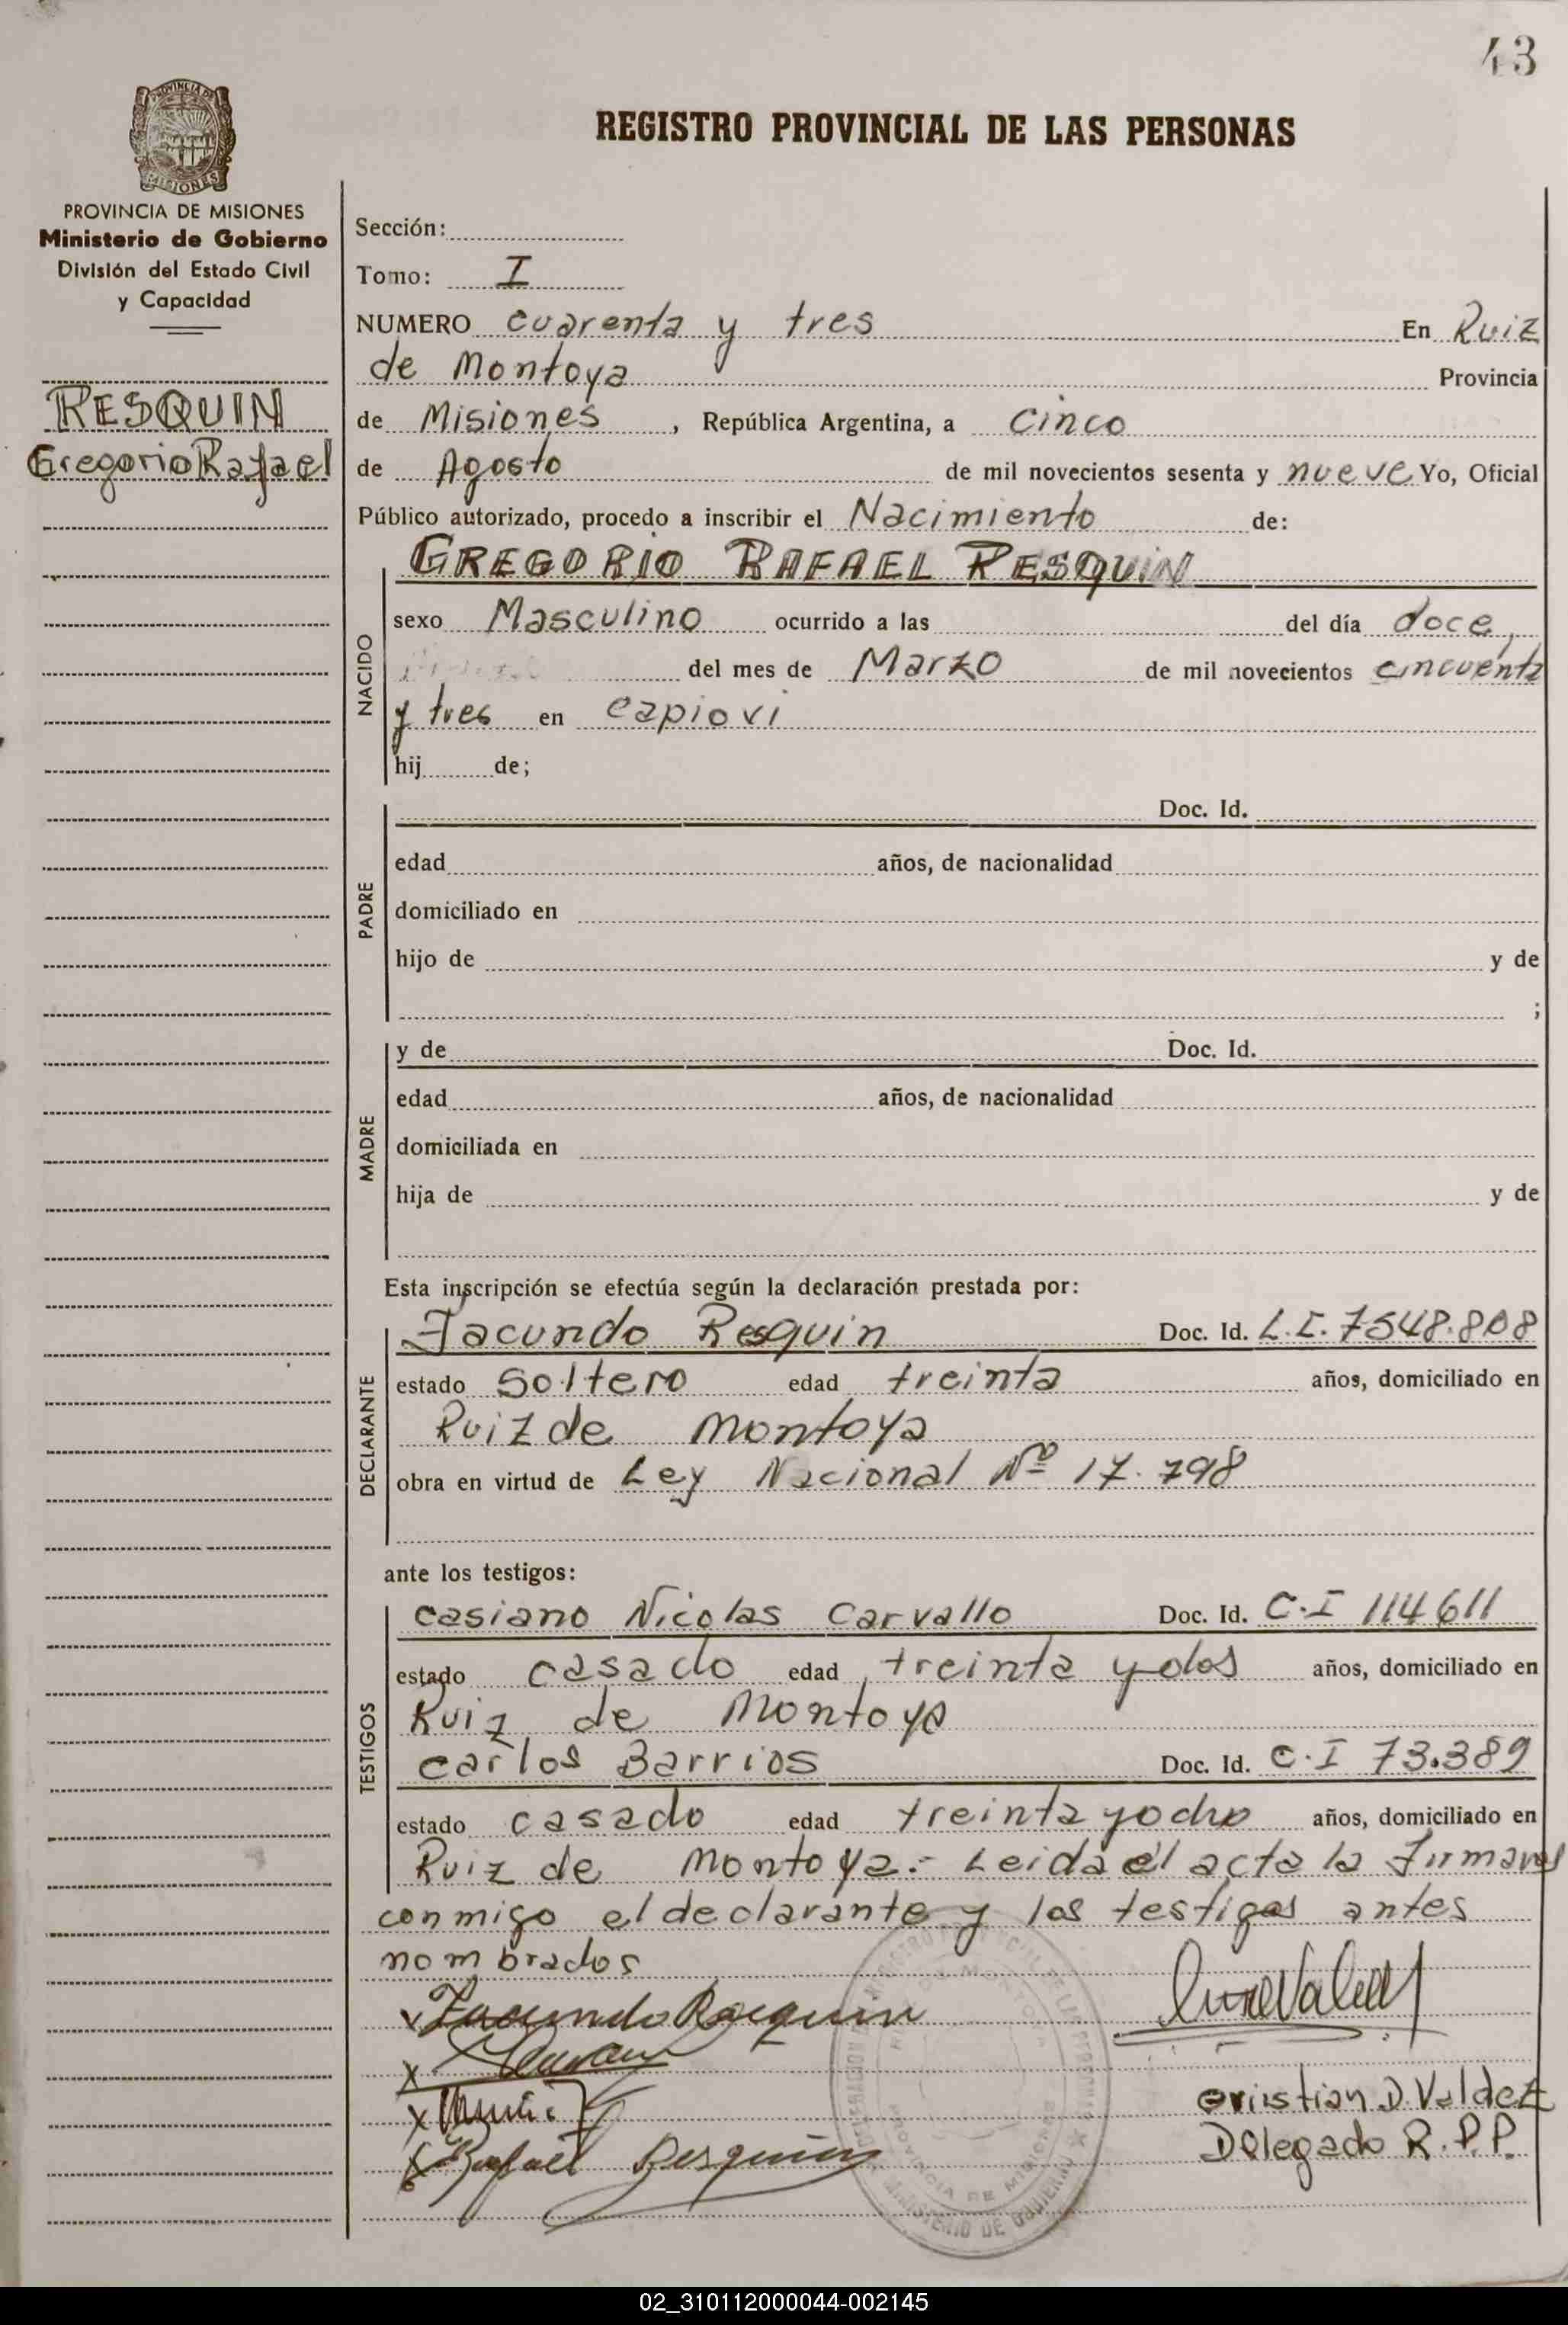 43
REGISTRO PROVINCIAL DE LAS PERSONAS
PROVINCIA DE MISIONES
Ministerio de Gobierno
División del Estado Civil
y Capacidad
RESQUIN
Gregorio Rafael
Sección:
Tomo: I
NUMERO cuarenta y tres En Ruiz
de Montoya Provincia
de Misiones, República Argentina, a Cinco
de Agosto de mil novecientos sesenta y nueve Yo, Oficial
Público autorizado, procedo a inscribir el Nacimiento de:
NACIDO
GREGORIO RAFAEL RESQUIN
sexo Masculino ocurrido a las del día doce,
del mes de Marzo de mil novecientos cincuenta
y tres en Capiovi
hij de;
PADRE
Doc. Id.
edad años, de nacionalidad
domiciliado en
hijo de y de
;
MADRE
y de Doc. Id.
edad años, de nacionalidad
domiciliada en
hija de y de
Esta inscripción se efectúa según la declaración prestada por:
DECLARANTE
Facundo Resquin Doc. Id. L.E. 7548.808
estado Soltero edad treinta años, domiciliado en
Ruiz de Montoya
obra en virtud de Ley Nacional Nº 17.798
ante los testigos:
TESTIGOS
Casiano Nicolas Carvallo Doc. Id. C.I 114611
estado casado edad treinta y dos años, domiciliado en
Ruiz de Montoya
Carlos Barrios Doc. Id. C.I 73.389
estado casado edad treinta y ocho años, domiciliado en
Ruiz de Montoya.- Leida el acta la firman
conmigo el declarante y los testigos antes
nombrados
Facundo Resquin
x
x
x Rafael Resquin
Cristian D. Valdez
Delegado R.P.P.
PROVINCIA DE MISIONES
MINISTERIO DE GOBIERNO
02_310112000044-002145